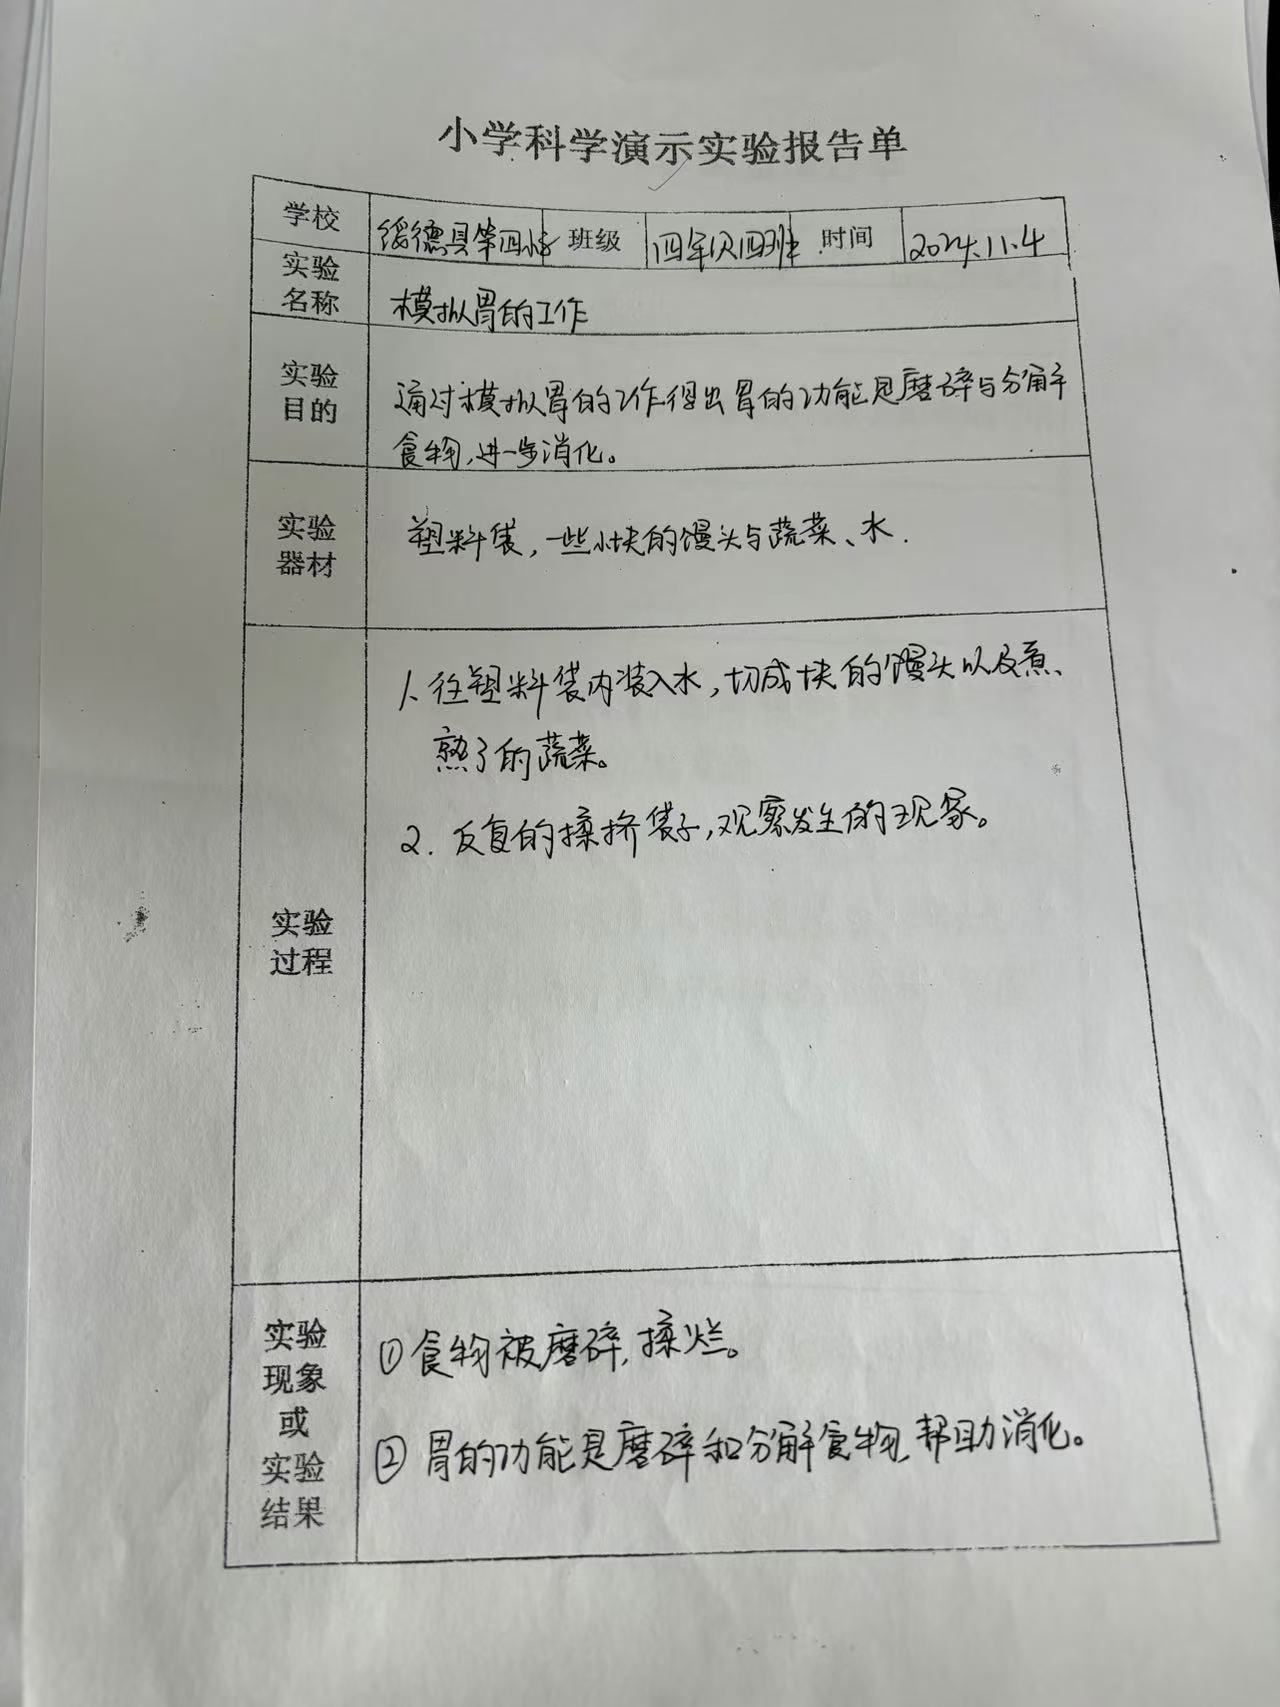 小学科学演示实验报告单
学校 绥德县第四小 班级 四年级四班 时间 2024.11.4
实验名称 模拟胃的工作
实验目的 通过模拟胃的工作得出胃的功能是磨碎与分解
食物,进一步消化。
实验器材 塑料袋,一些小块的馒头与蔬菜、水.
实验过程
1、往塑料袋内装入水,切成块的馒头以及煮
熟了的蔬菜。
2. 反复的揉挤袋子,观察发生的现象。
实验现象或实验结果
①食物被磨碎,揉烂。
②胃的功能是磨碎和分解食物,帮助消化。